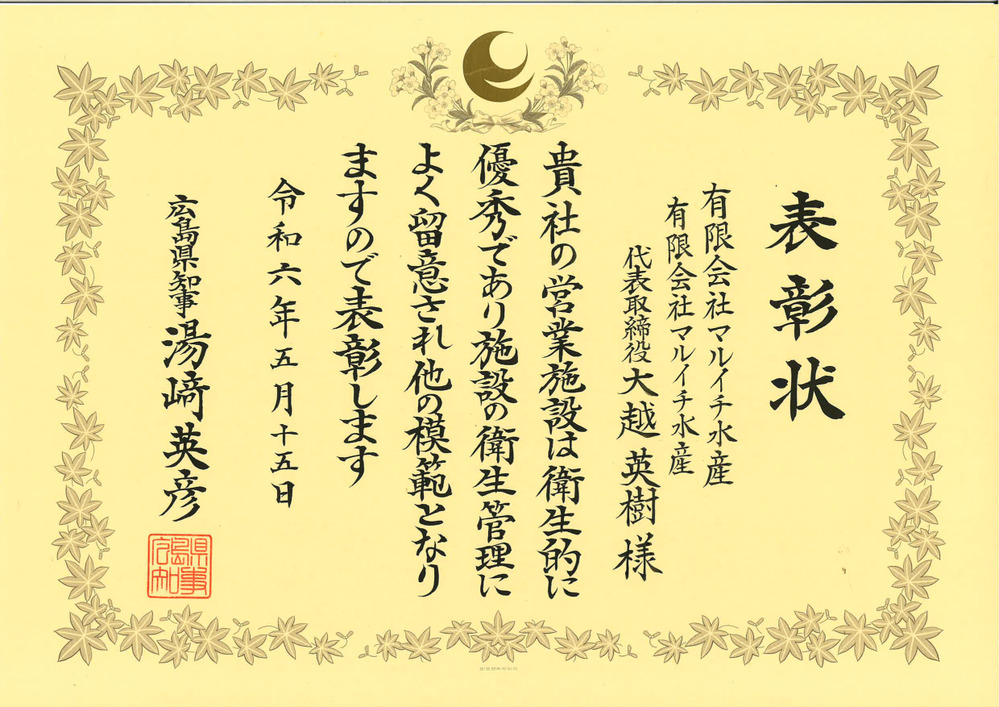 表彰状
有限会社マルイチ水産
有限会社マルイチ水産
代表取締役 大越 英樹 様
貴社の営業施設は衛生的に
優秀であり施設の衛生管理に
よく留意され他の模範となり
ますので表彰します
令和六年五月十五日
広島県知事 湯﨑英彦
広島県知事